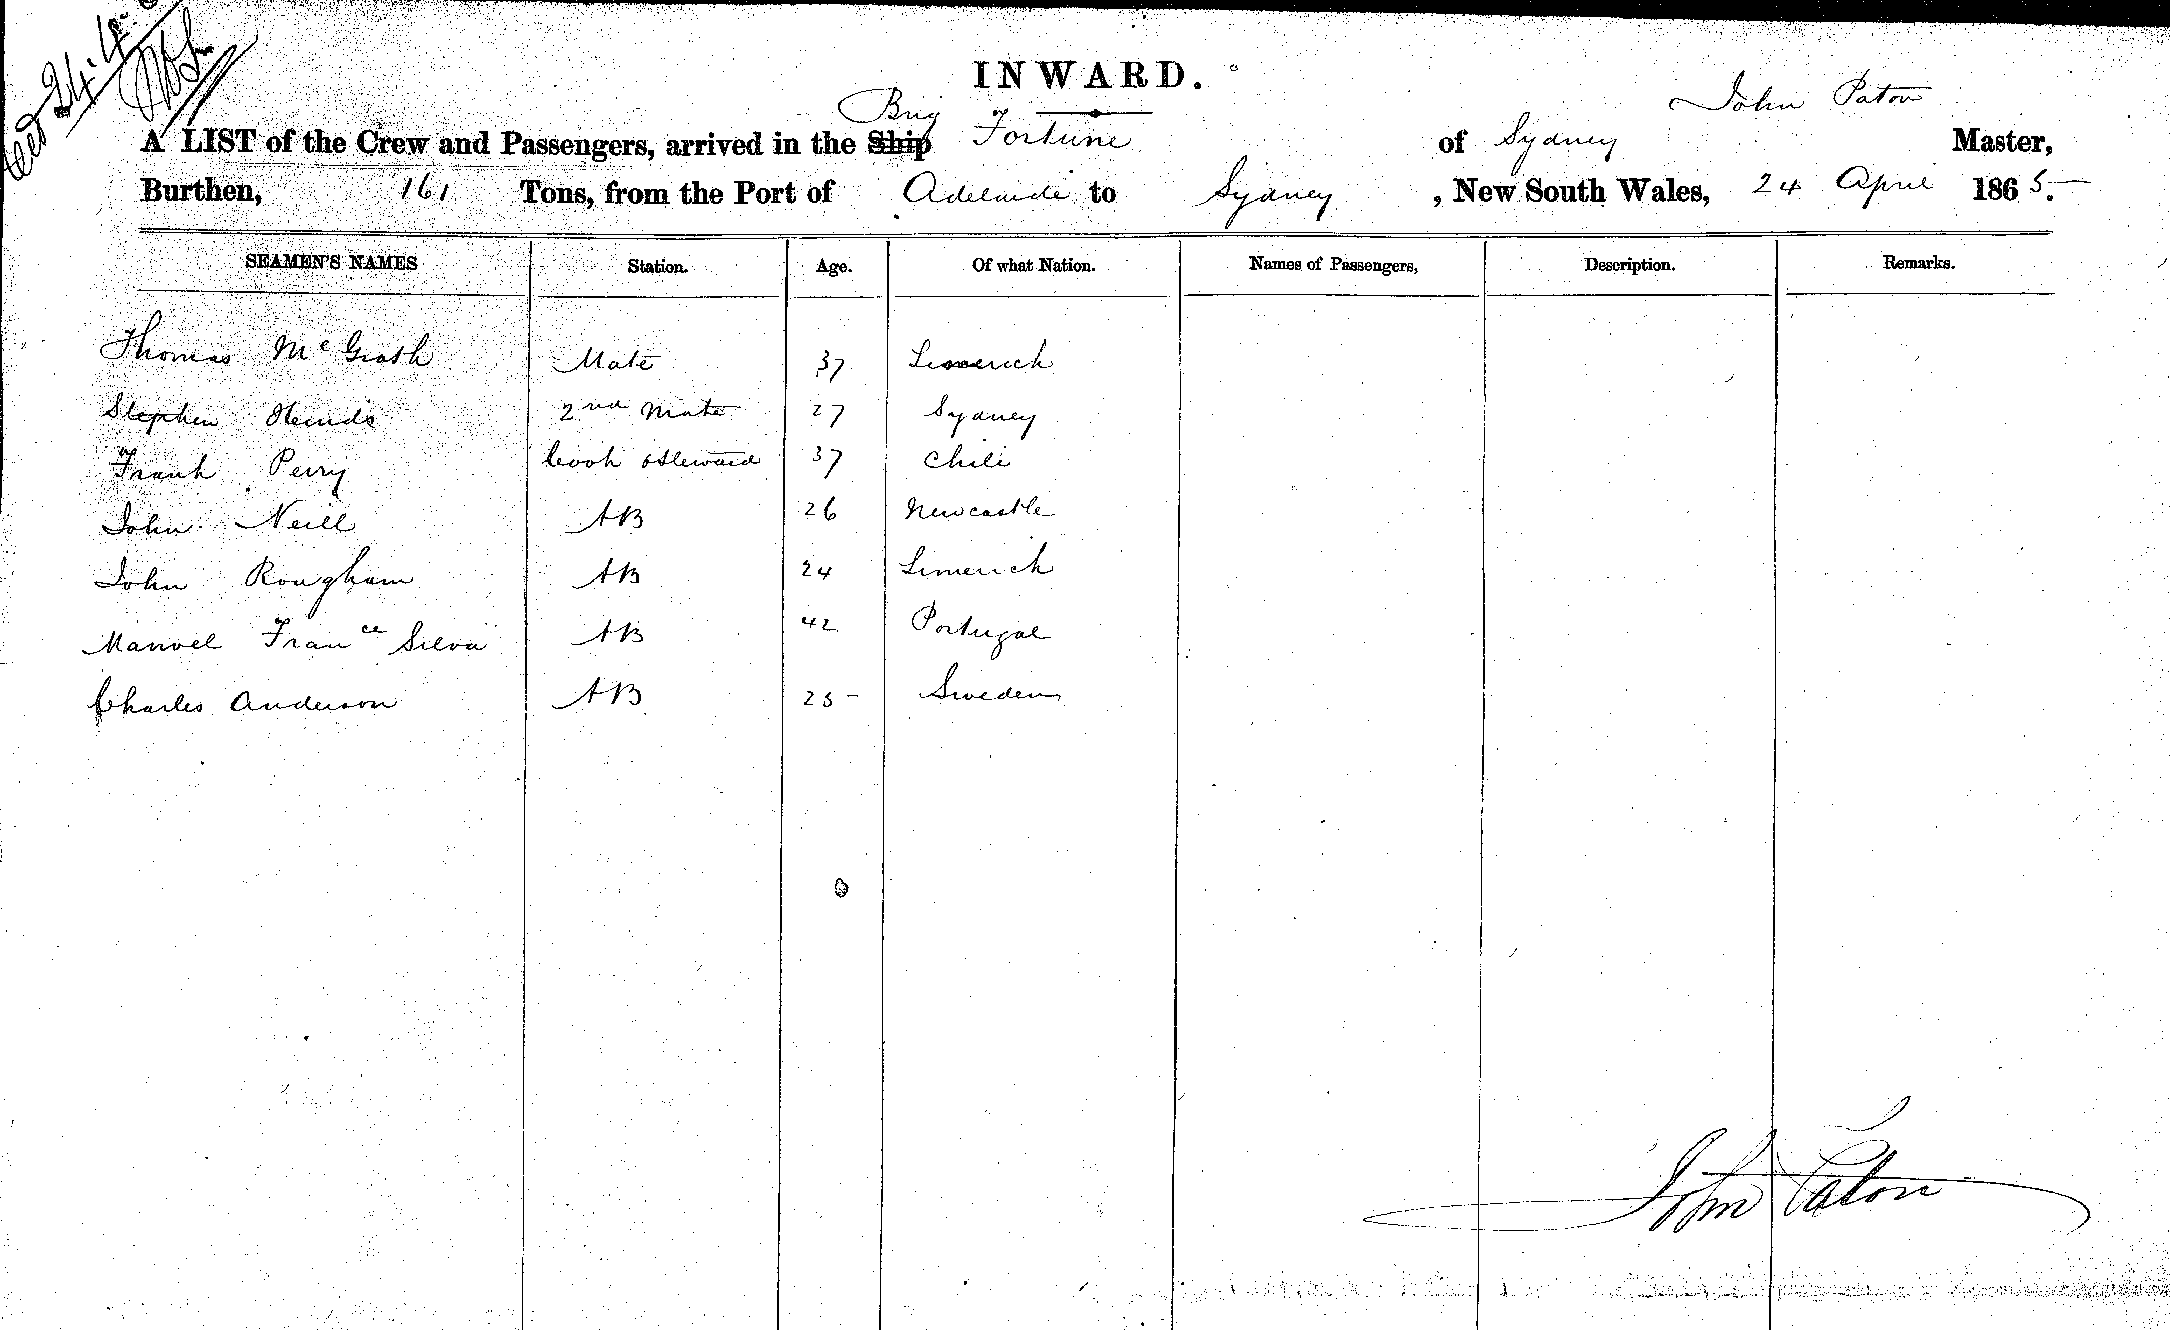 24.4.
INWARD.
John Paton
Brig
A LIST of the Crew and Passengers, arrived in the Ship Fortune of Sydney Master,
Burthen, 161 Tons, from the Port of Adelaide to Sydney, New South Wales, 24 April 1865.
SEAMEN'S NAMES Station. Age. Of what Nation. Names of Passengers, Description. Remarks.
Thomas McGrath Mate 37 Limerick
Stephen Hinds 2nd Mate 27 Sydney
Frank Perry Cook & Steward 37 Chili
John Neill AB 26 Newcastle
John Rougham AB 24 Limerick
Manoel Franco Silva AB 42 Portugal
Charles Anderson AB 25 Sweden
John Paton